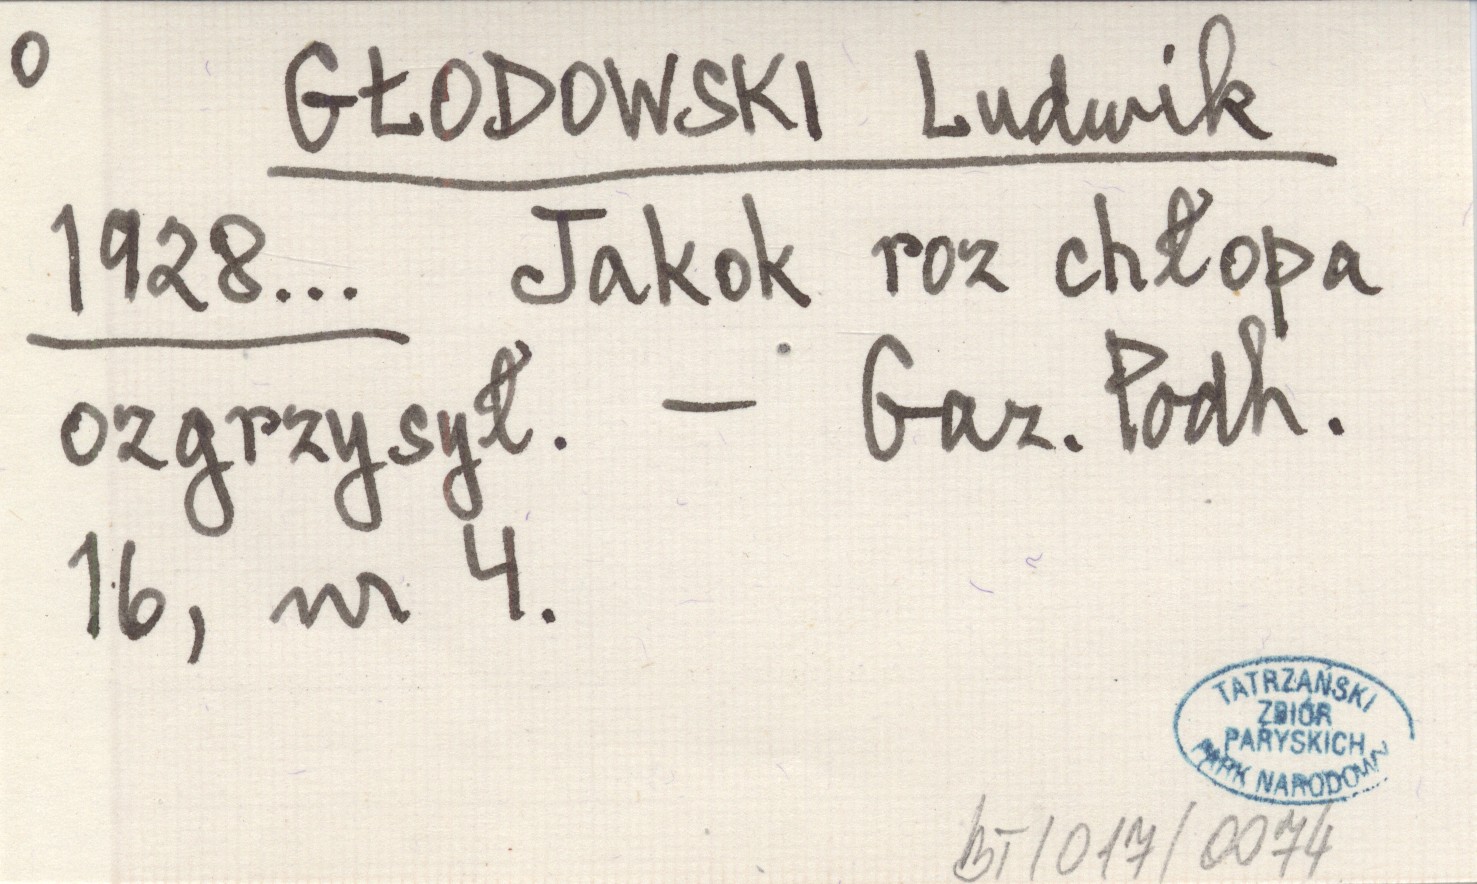 0
GŁODOWSKI Ludwik
1928... Jakok roz chłopa
ozgrzysył. — Gaz. Podh.
16, nr 4.
TATRZAŃSKI
ZBIÓR
PARYSKICH
PARK NARODOWY
BT/017/0074